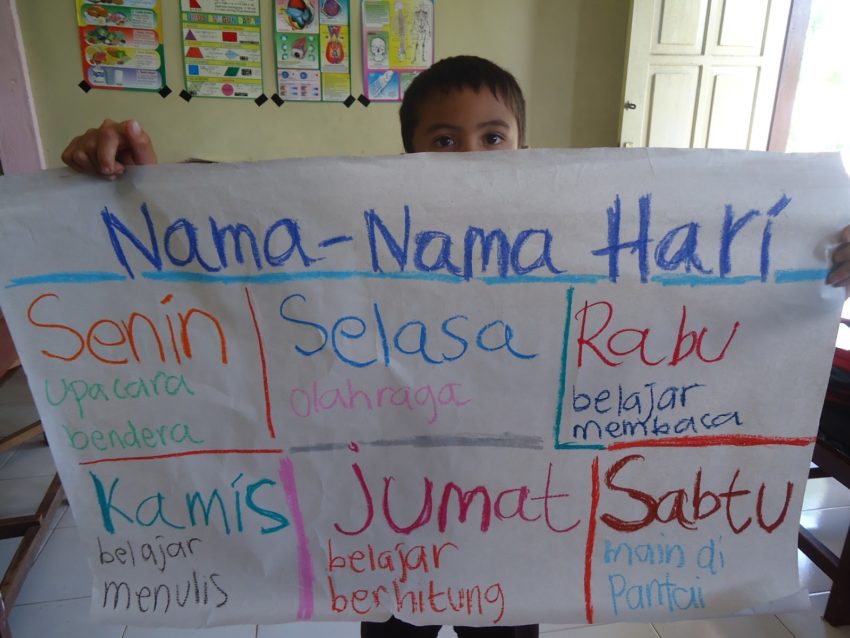 Nama-Nama Hari
Senin
upacara
bendera
Selasa
olahraga
Rabu
belajar
membaca
Kamis
belajar
menulis
Jumat
belajar
berhitung
Sabtu
main di
Pantai